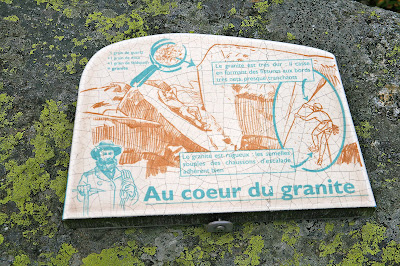 1 grain de quartz
+ granite
Le granite est très dur : il casse
en formant des fissures aux bords
très nets presque tranchants
Le granite est rugueux : les semelles
souples des chaussons d'escalade
adhèrent bien
Au coeur du granite